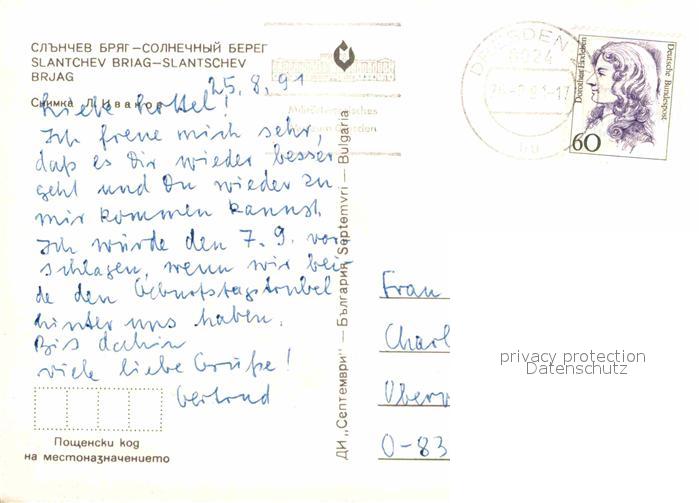 СЛЪНЧЕВ БРЯГ—СОЛНЕЧНЫЙ БЕРЕГ
SLANTCHEV BRIAG—SLANTSCHEV
BRJAG
Снимка Л. Иванов
25.8.91
Liebe Lottel!
Ich freue mich sehr,
daß es Dir wieder besser
geht und Du wieder zu
mir kommen kannst.
Ich würde den 7.9. vor
schlagen, wenn wir bei-
de den Geburtstagstrubel
hinter uns haben.
Bis dahin
viele liebe Grüße!
Gertrud
Пощенски код
на местоназначението
ДИ „Септември" — България Septemvri — Bulgaria
DRESDEN
8024
Dorothea Erxleben
Deutsche Bundespost
60
Frau
Charl
Oberw
O-83
privacy protection
Datenschutz